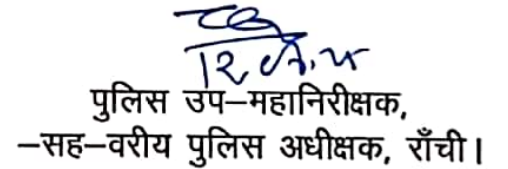 पुलिस उप–महानिरीक्षक,
–सह–वरीय पुलिस अधीक्षक, राँची।